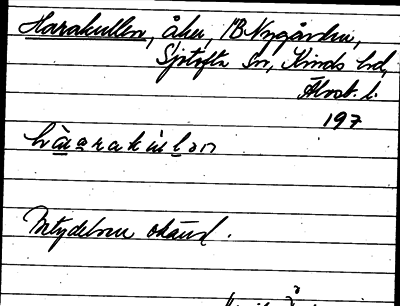 Harakullen, åker, 1B Nygården,
Sjötofta sn, Kinds hd,
Älvsb. l.
197
Betydelsen okänd.